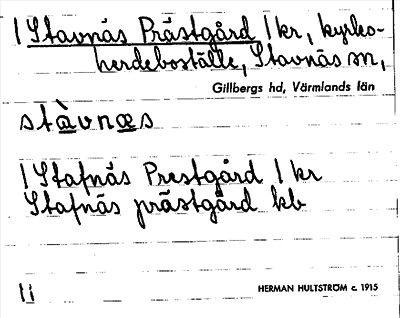 1 Stavnäs Prästgård 1 kr, kyrko-
herdeboställe, Stavnäs sn,
Gillbergs hd, Värmlands län
stàvnæs
1 Stafnäs Prestgård 1 kr
Stafnäs prästgård kb
11
HERMAN HULTSTRÖM c. 1915